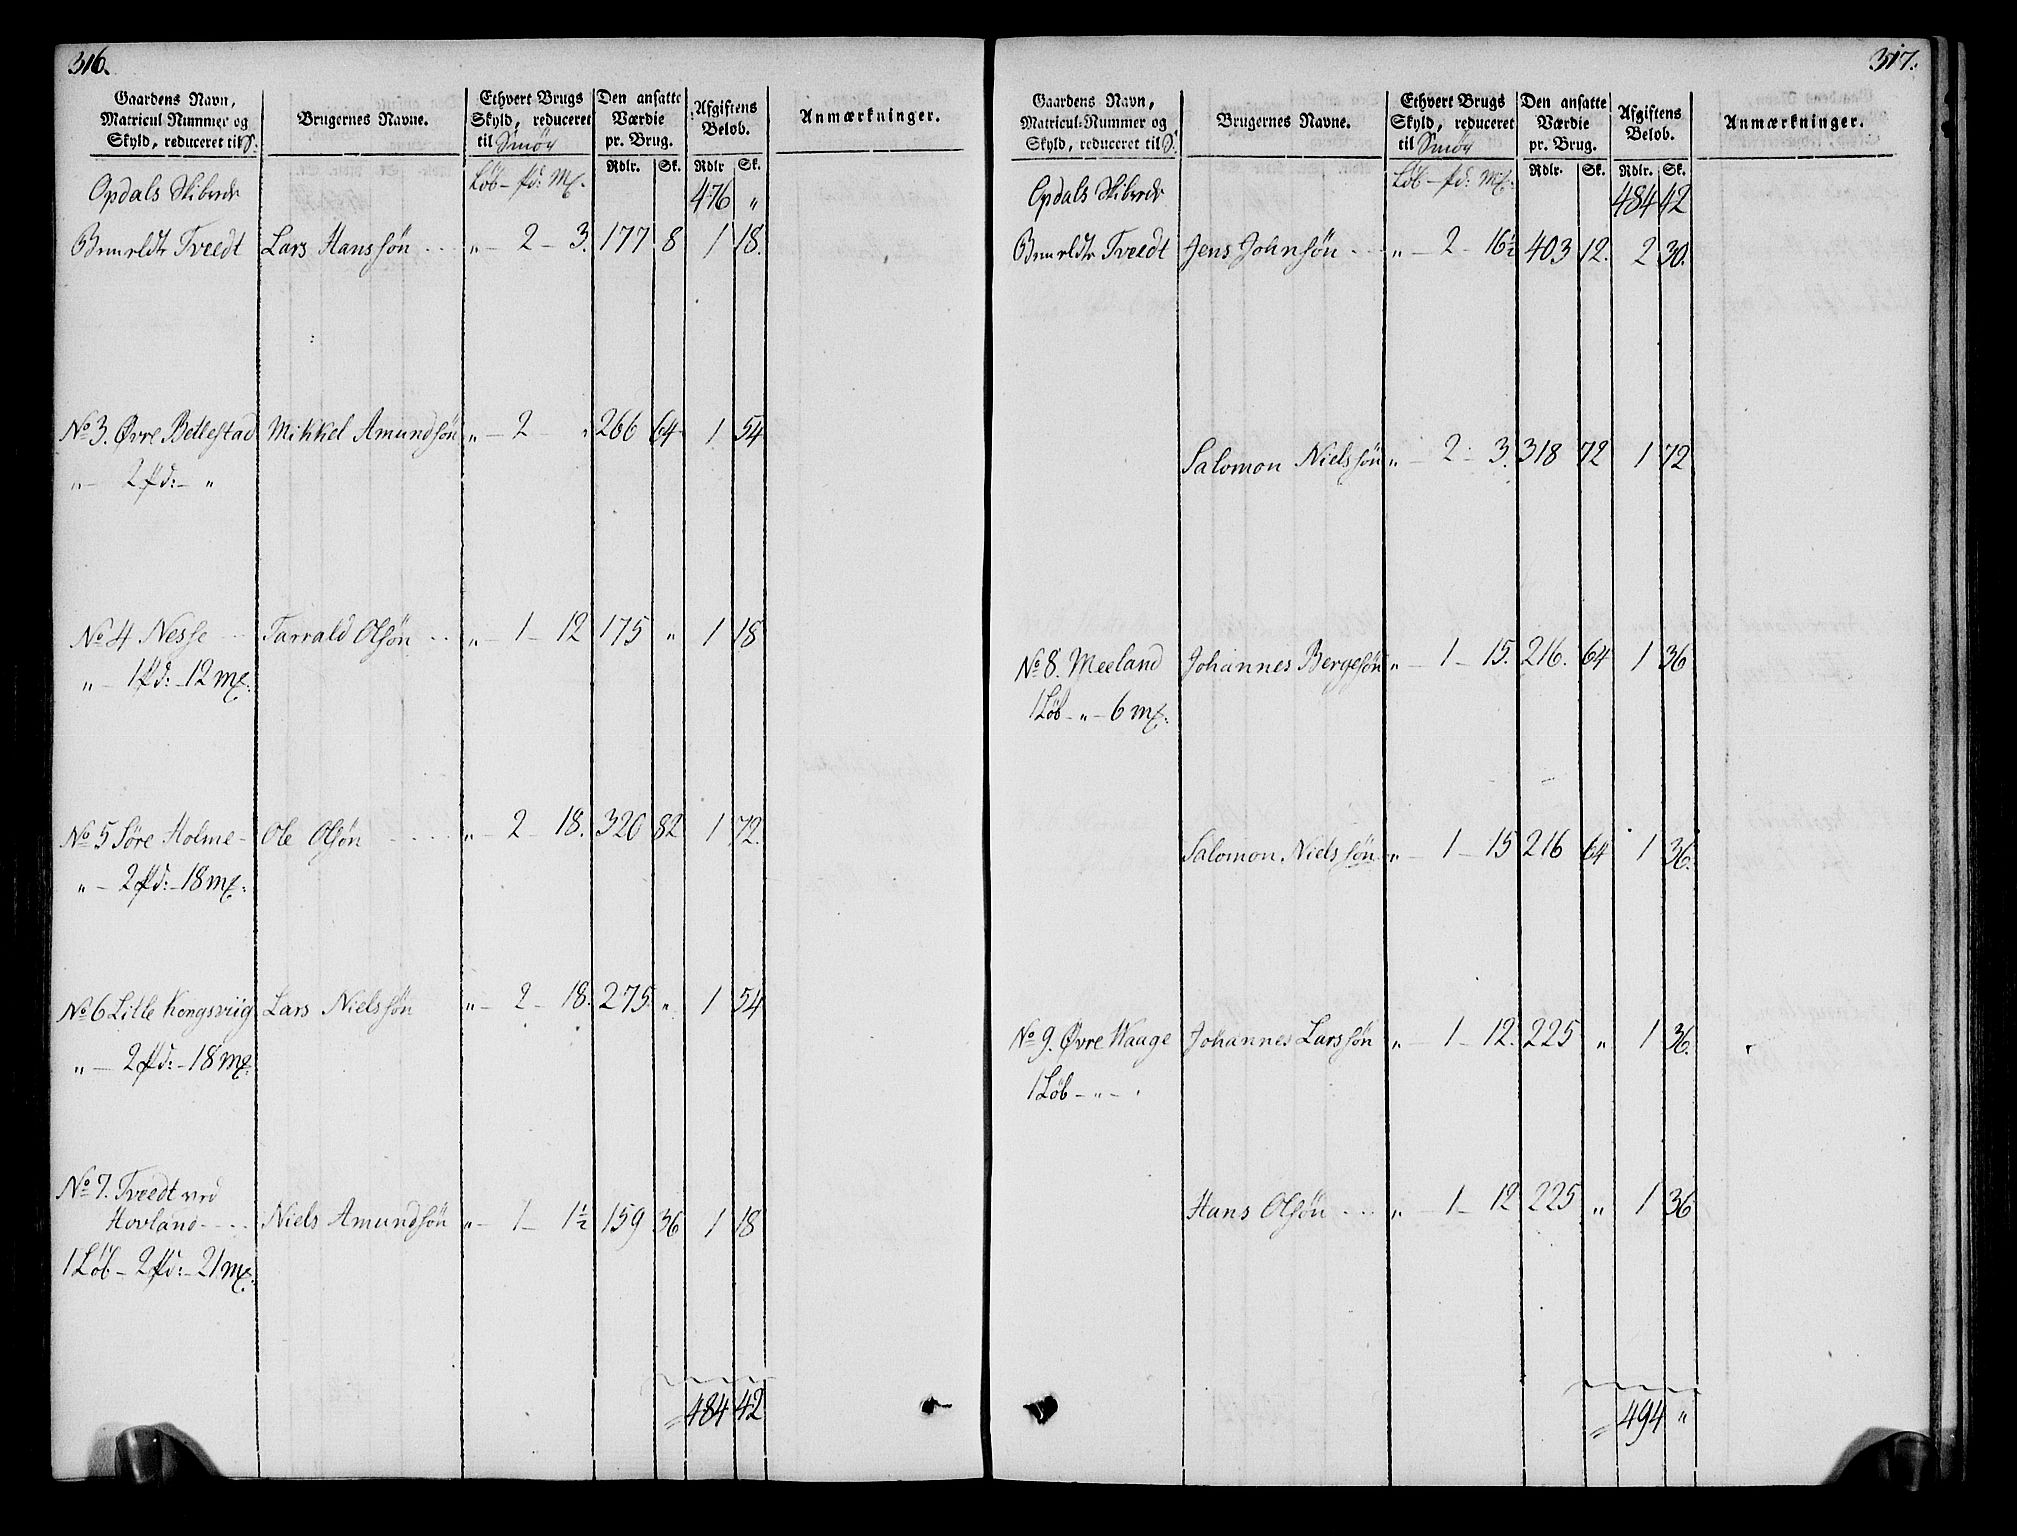 316.
Gaardens Navn, Matricul-Nummer og Skyld, reduceret til S:
Brugernes Navne.
Ethvert Brugs Skyld, reduceret til Smör
Den ansatte Værdie pr. Brug.
Afgiftens Belob.
Anmærkninger.
Løb — pd: Mk.
Rdlr. Sk. Rdlr Sk.
Opdals Skibrede 476 "
Tveedt Lars Hanssøn " — 2 — 3. 177 8 1 18.
No 3. Øvre Bellestad Mikkel Amundsøn " — 2 — " 266 64 1 54
" — 2 pd: — "
No 4 Nesse Tarrald Olsøn " — 1 — 12 175 " 1 18
" — 1 pd: — 12 mk:
No 5 Söre Holme — Ole Olsøn " — 2 — 18. 320 82 1 72.
" — 2 pd: — 18 mk:
No 6 Lille Kongsviig Lars Nielssøn " — 2 — 18. 275 " 1 54
" — 2 pd: — 18 mk:
No 7. Tveedt ved
Hovland Niels Amundsøn " — 1 — 1½ 159 36 1 18
1 Løb — 2 pd: — 21 mk:
484 42
317.
Gaardens Navn, Matricul-Nummer og Skyld, reduceret til S:
Brugernes Navne.
Ethvert Brugs Skyld, reduceret til Smör
Den ansatte Værdie pr. Brug.
Afgiftens Belob.
Anmærkninger.
Løb — pd: Mk:
Rdlr. Sk. Rdlr. Sk.
Opdals Skibrede 484 42
Tveedt Jens Johnsøn " — 2 — 16½ 403 12. 2 30.
Salomon Nielssøn " — 2 — 3. 318 72 1 72
No 8. Meeland Johannes Bergesøn " — 1 — 15. 216. 64 1 36
1 Løb — " — 6 mk:
Salomon Nielssøn " — 1 — 15 216 64 1 36.
No 9. Øvre Waage Johannes Larssøn " — 1 — 12. 225 " 1 36.
1 Løb — " — "
Hans Olsøn " — 1 — 12 225 " 1 36
494 "